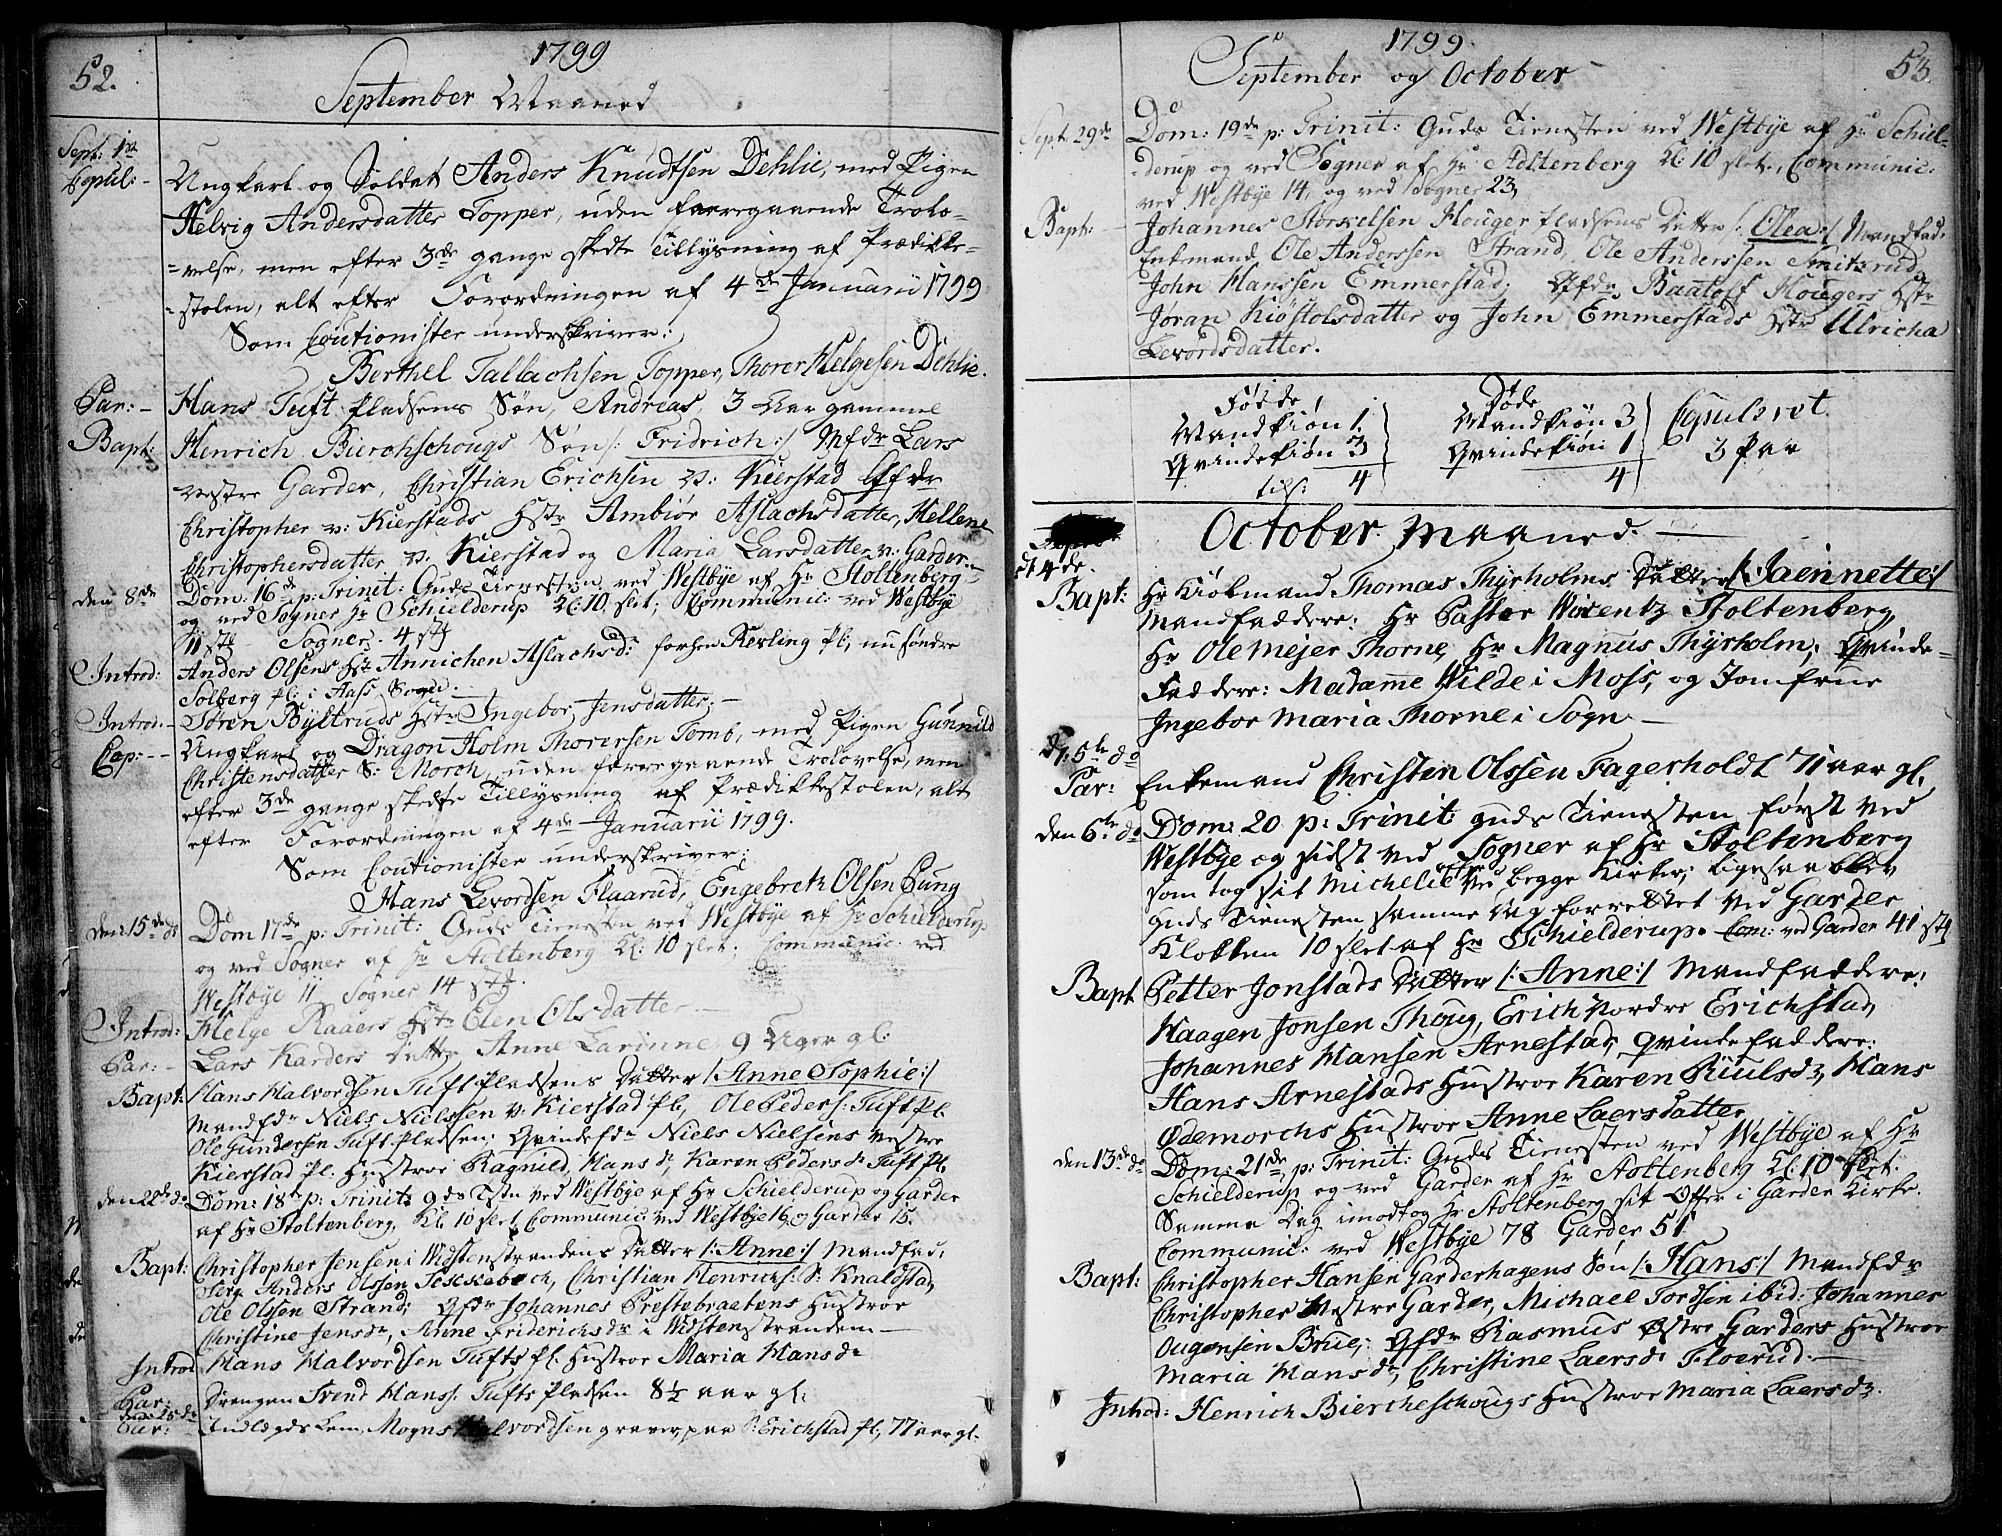 52.
1799
September Maaned
Sept: 1ste
Copul:-
Ungkarl og Soldat Anders Knudtsen Dehlie, med Pigen
Helvig Andersdatter Topper, uden foregaaende Trolo-
=velse, men efter 3de gange skedte Tillysning af Prædikke-
=stolen, alt efter Forordningen af 4de Januarii 1799
Som Coutionister underskriver:
Berthel Tallachsen Topper, Thorer Helgesen Dehlie.
Par:-
Hans Tuft Pladsens Søn, Andreas, 3 Aar gammel
Bapt:
Henrich Bierchschougs Søn /: Fridrich :/ Mfdr Lars
vestre Garder, Christian Erichsen v: Kierstad Qfdr
Christopher v: Kierstads Hstr Ambiør Aslachsdatter, Hellene
Christophersdatter v: Kierstad og Maria Larsdatter v: Garder.
den 8de
Dom: 16de p: Trinit: Guds Tienesten ved Westbye af Hr Stoltenberg
og ved Sogner Hr Schielderup Kl: 10 slet; Communic: ved Westbye
11 stk Sogner 4 stk
Introd:
Anders Olsens Hstr Annichen Aslachsd: forhen Kerling Pl, nu søndre
Solberg Pl: i Aass Sogn.
Introd:-
Søren Byltruds Hstr Ingebor Jensdatter.-
Cop:--
Ungkarl og Dragon Holm Thorersen Tomb, med Pigen Gunnild
Christensdatter S: Morch, uden foregaaende Trolovelse, men
efter 3de gange skedte Tillysning af Prædikkestolen, alt
efter Forordningen af 4de Januarii 1799.
Som Coutionister underskriver:
Hans Levordsen Flaarud, Engebreth Olsen Pung
den 15de ds
Dom 17de p: Trinit: Guds Tienesten ved Westbye af Hr Schielderup
og ved Sogner af Hr Stoltenberg Kl: 10 slet; Communic: ved
Westbye 11 Sogner 14 stk.
Introd:
Helge Raaers Hstr Elen Olsdatter-
Par:-
Lars Karders Datter, Anne Larinne 9 Uger gl.
Bapt:
Hans Halvordsen Tuft Pladsens Datter /: Anne Sophie :/
Mandfdr Niels Nielssen v: Kierstad Pl, Ole Peders: Tuft Pl.
Ole Gundersen Tuft Pladsen; Qvindefdr Niels Nielsens vestre
Kierstad Pl: Hustroe Ragnild Hansdr, Karen Pedersdr Tuft Pl.
den 22de ds
Dom: 18de p: Trinit: gds Tstn ved Westbye af Hr Schielderup og Garder
af Hr Stoltenberg, Kl: 10 slet Communic: ved Westbye 16, og Garder 15.
Bapt:
Christopher Jensen i Widstenstrandens Datter /: Anne :/ Mandfad:
Serg Anders Olsson, Christian Henrichs: S: Knaldstad,
Ole Olsen Strand; Qfdr Johannes Prestebraatens Hustroe
Christine Jensdr, Anne Friderichsdr i Widstenstrandem-
Introd
Hans Halvordsen Tufts Pl. Hustroe Maria Hansdr
Par:
Drengen Svend Hanss: Tufts Pladsen 8½ aar gl:
den 25de
Par:
Indlægds Lem Mogns Halvordsen graver paa S: Erichstad Pl, 77 aar gl.
1799.
53.
September og October
Sept 29de
Dom: 19de p: Trinit: Guds Tienesten ved Westbye af Hr Schiel-
=derup og ved Sogner af Hr Stoltenberg Kl: 10 slet, Communic:
ved Westbye 14, og ved Sogner 23,
Bapt:
Johannes Storkelsen Houger Pladsens Datter /: Olea :/ Mandfad:
Enkemand Ole Anderssen Strand, Ole Anderssen Smitsrud,
John Hanssen Emmerstad; Qfdr Baatolf Hougers Hstr
Joran Kiøstolsdatter og John Emmerstads Hstr Ulricha
Levordsdatter.
Fødde
Mandkiøn 1.
Qvindekiøn 3
tils: 4
Døde
Mandkiøn 3
Qvindekiøn 1
4
Copuleret
3 Par
October Maaned.
d 4de.
Bapt:
Hr Kiøbmand Thomas Thyrholms Datter /: Jaennette :/
Mandfaddere: Hr Pastor Worentz Stoltenberg,
Hr Ole Mejer Thorne, Hr Magnus Thyrholm; Qvinde=
Faddere: Madame Wilde i Moss, og Jomfrue
Ingebor Maria Thorne i Sogn-
d. 5te do
Par:
Enkemand Christen Olssen Fagerholdt 71 aar gl.
den 6te do
Dom: 20 p: Trinit: guds Tienesten først ved
Westbye og sidst ved Sogner af Hr Stoltenberg
som tog sit Micheli offer ved begge Kirker; ligesaa blev
guds Tienesten samme Dag forrettet ved Garder
Klokken 10 slet af Hr Schielderup. Com: ved Garder 41 stk
Bapt
Petter Jonstads Datter /: Anne :/ Mandfaddere:
Haagen Jonsen Thoug, Erich Nordre Erichstad,
Johannes Hansen Arnestad, Qvindefaddere:
Hans Arnestads Hustroe Karen Riulsdr, Hans
Ødemorchs Hustroe Anne Laersdatter
den 13de ds
Dom: 21de p: Trinit: Guds Tienesten ved Westbye af Hr
Schielderup og ved Garder af Hr Stoltenberg Kl: 10 slet:
Samme Dag imodtog Hr Stoltenberg sit Offer i Garder Kirke.
Communic: ved Westbye 78 Garder 51
Bapt:
Christopher Hansen Garderhagens Søn /: Hans :/ Mandfdr
Christopher Westre Garder, Michael Tordsen ibid: Johannes
Ougensen Brue; Qfdr Rasmus Østre Garders Hustroe
Maria Hansdr, Christine Laersdr Floerud.-
Introd:
Henrich Biercheschougs Hustroe Maria Laersdr.